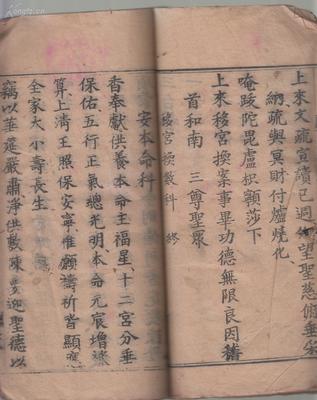 上來文疏宣讀已週仰望聖慈俯垂采
納疏與冥財付爐燒化
唵陵陀毘盧枳顙莎下
上來移宮換案事畢功德無限良因
首和南 三尊聖衆
移宮換數科 終
安本命科
香奉獻供養本命主福星十二宮分垂
保佑五行正氣總光明本命元宸增
算上清王照保安寧惟願壽祈皆顯應
全家大小壽長生
竊以華筵嚴肅淨供敷陳 迎聖德以